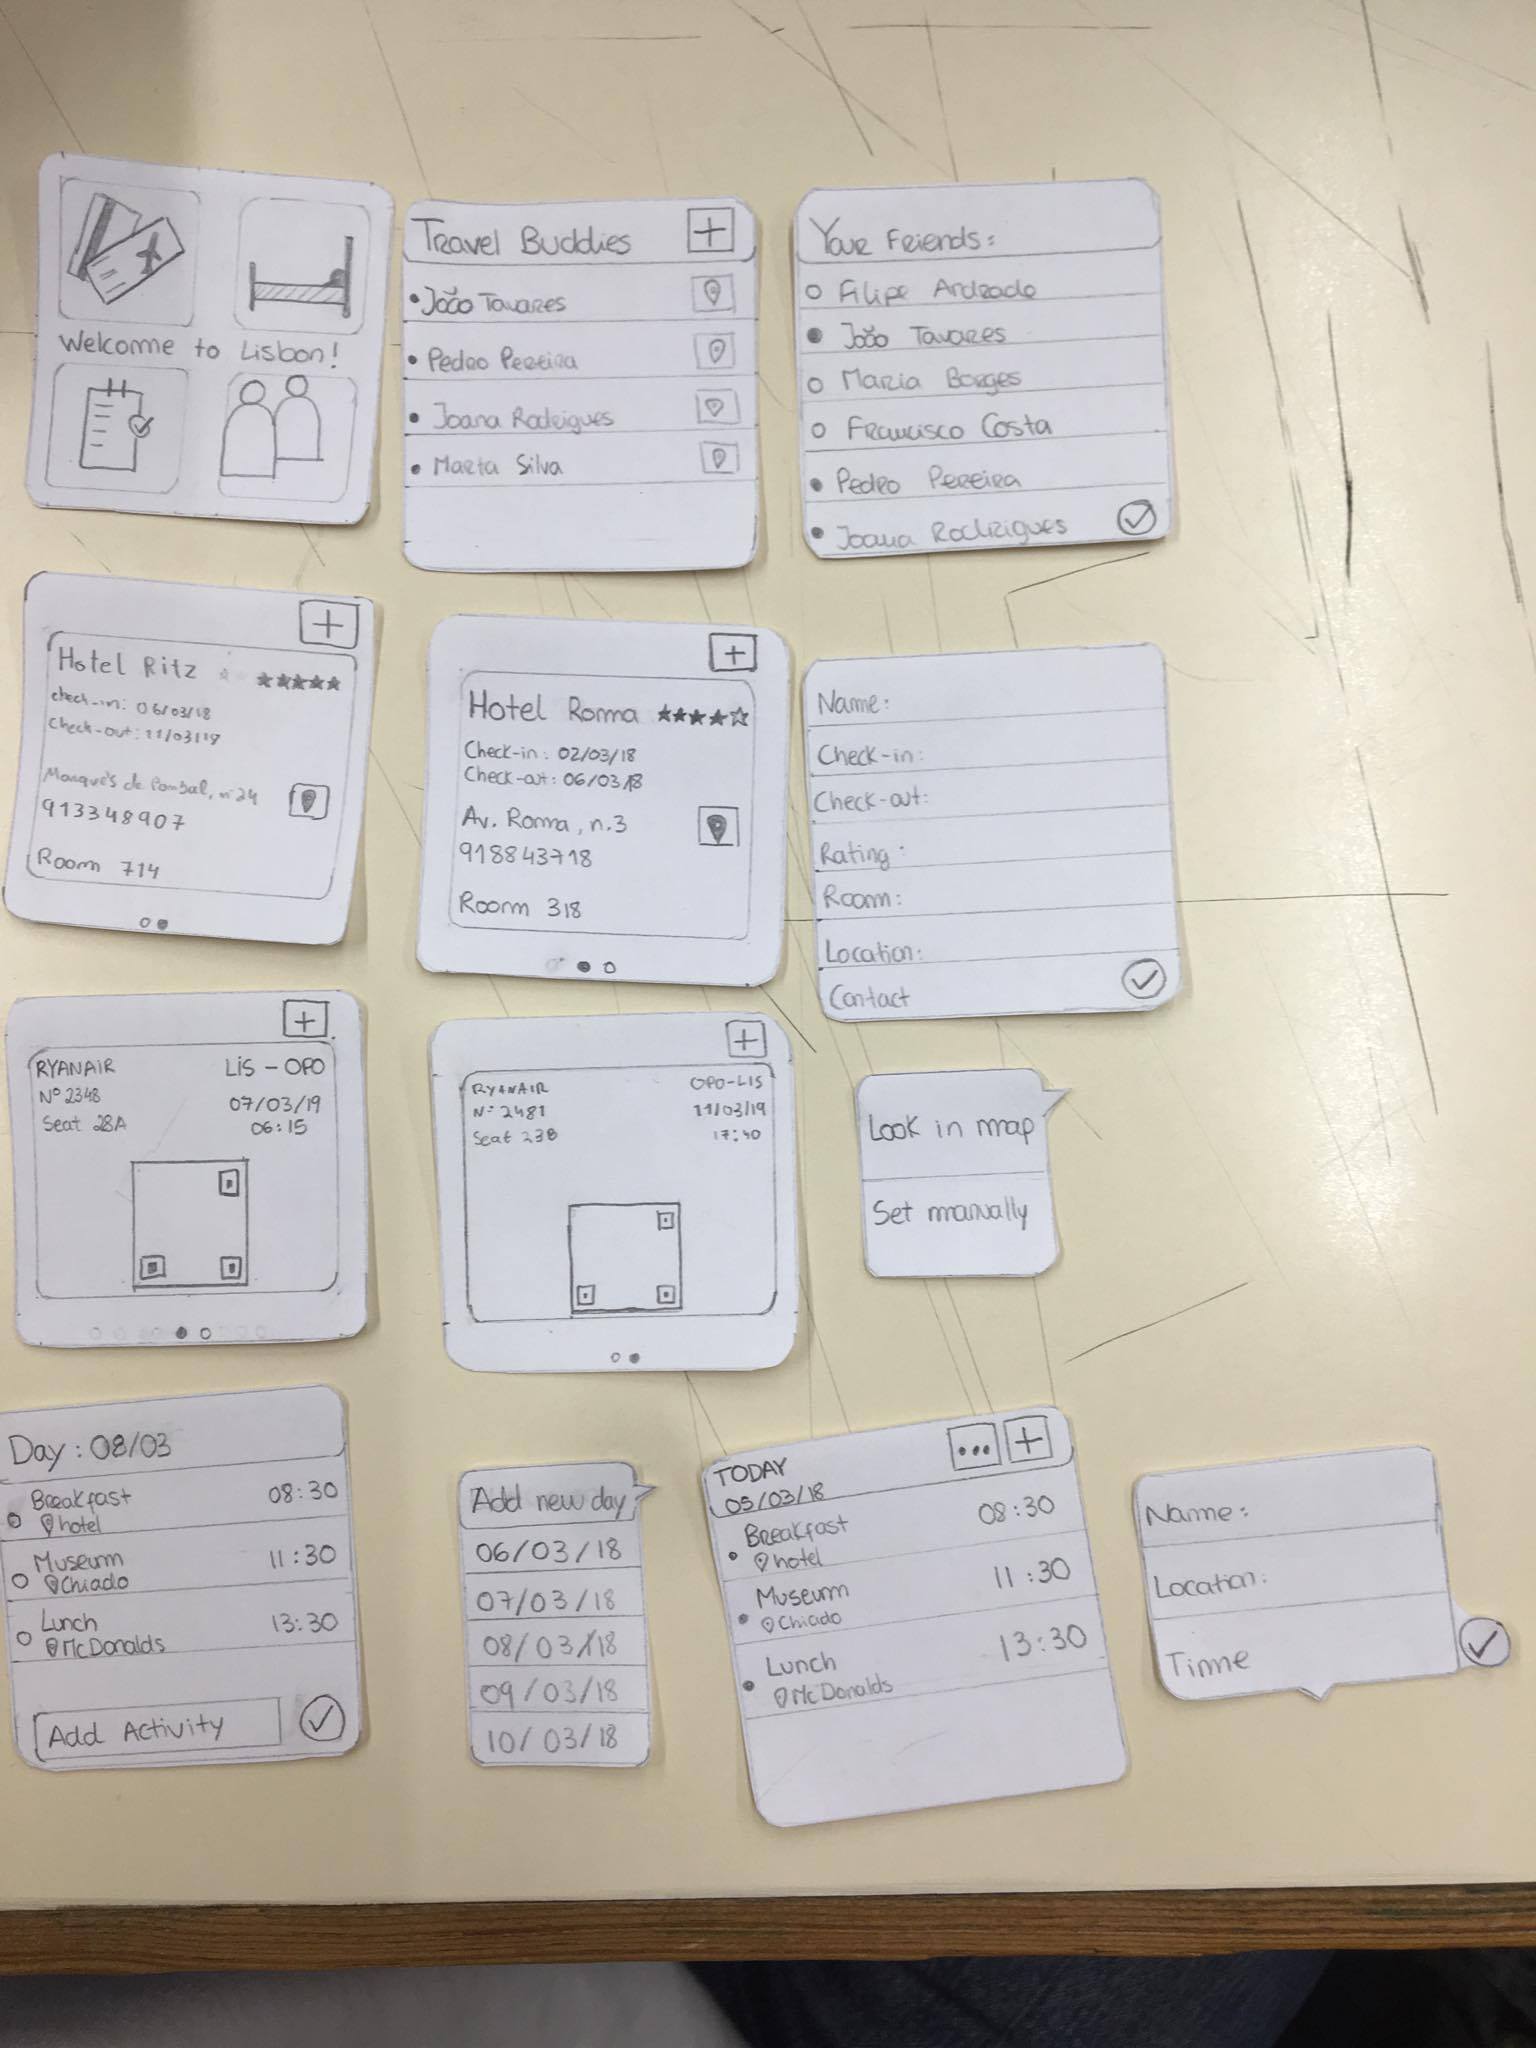 Welcome to Lisbon!
Travel Buddies +
João Tavares
Pedro Pereira
Joana Rodrigues
Marta Silva
Your Friends:
Filipe Andrade
João Tavares
Maria Borges
Francisco Costa
Pedro Pereira
Joana Rodrigues
+
Hotel Ritz ★★★★★
check-in: 06/03/18
Check-out: 11/03/18
Marquês de Pombal, nº24
913348907
Room 714
+
Hotel Roma ★★★★☆
Check-in: 02/03/18
Check-out: 06/03/18
Av. Roma, n.3
918843718
Room 318
Name:
Check-in:
Check-out:
Rating:
Room:
Location:
Contact
+
RYANAIR LIS - OPO
Nº 2348 07/03/19
Seat 28A 06:15
+
RYANAIR OPO-LIS
Nº 2481 11/03/19
Seat 23B 17:40
Look in map
Set manually
Day: 08/03
Breakfast 08:30
hotel
Museum 11:30
Chiado
Lunch 13:30
McDonalds
Add Activity
Add new day
06/03/18
07/03/18
08/03/18
09/03/18
10/03/18
... +
TODAY
05/03/18
Breakfast 08:30
hotel
Museum 11:30
Chiado
Lunch 13:30
McDonalds
Name:
Location:
Time